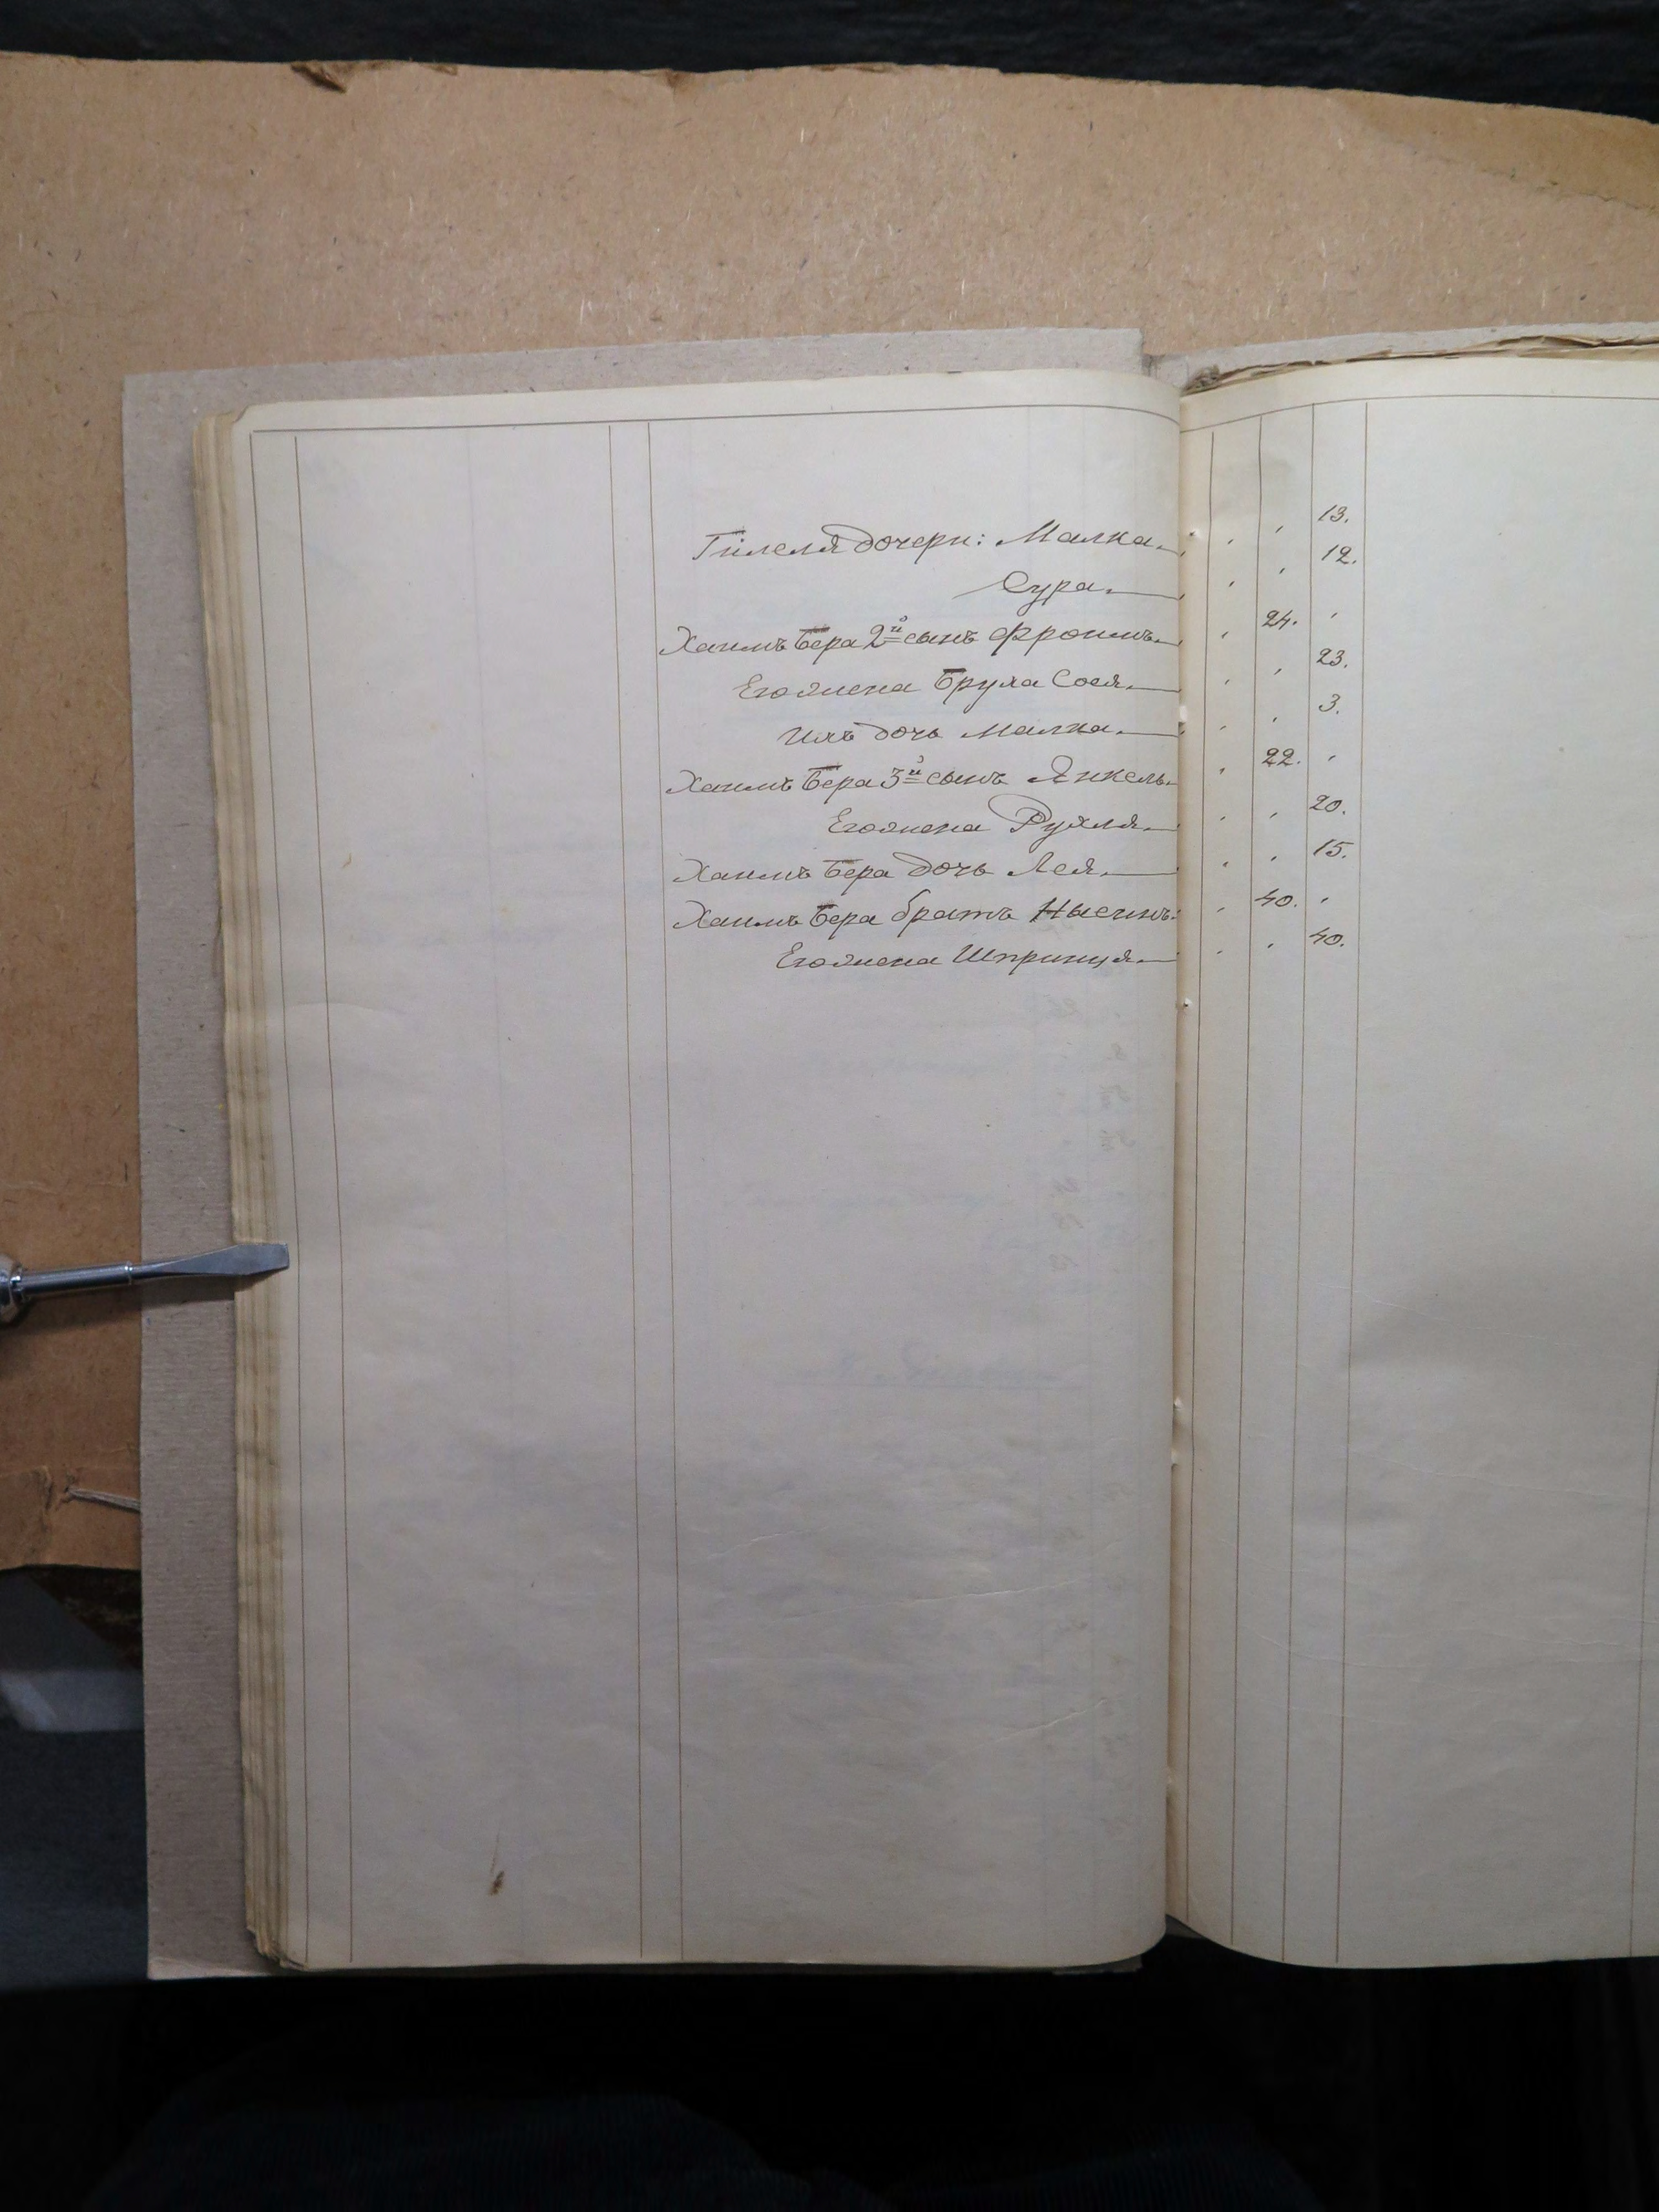 Гилеля дочери: Малка. , , 13.
Сура. , , 12.
Хаимъ Бера 2й сынъ Фроимъ. , 24. ,
Его жена Бруха Сося. , , 23.
Ихъ дочь Малка. , , 3.
Хаимъ Бера 3й сынъ Янкель. , 22. ,
Его жена Рухля. , , 20.
Хаимъ Бера дочь Лея. , , 15.
Хаимъ Бера братъ , 40. ,
Его жена Шпринця. , , 40.